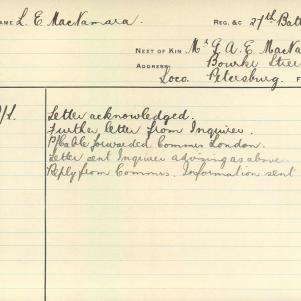 NAME L. E. MacNamara. REG. &C 27th Batt
NEXT OF KIN Mr G. A. E. MacNa
ADDRESS Bourke Stree
Loco. Petersburg. F
/1. Letter acknowledged.
Further letter from Inquirer.
P/Cable forwarded Commrs London.
Letter sent Inquirer advising as above.
Reply from Commrs. Information sent